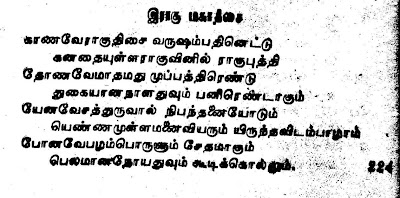 இராகு மகாத்சை
காணவேராகுதிசை வருஷம்பதினெட்டு
கனதையுள்ளராகுவினில் ராகுபுத்தி
தோணவேமாதமது முப்பத்திரெண்டு
துகையானநாளதுவும் பனிரெண்டாகும்
யேனவேசத்துருவால் நிபந்தனையோடும்
யெண்ணமுள்ளமனைவியரும் யிருந்தவிடம்பாழாம்
போனவேபழம்பொருளும் சேதமாகும்
பெலமானநோயதுவும் கூடிக்கொல்லும். 224